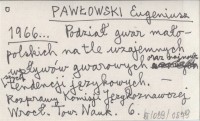 PAWŁOWSKI Eugeniusz
1966... Podział gwar mało-
polskich na tle wzajemnych
wpływów gwarowych oraz
tendencji językowych.
Rozprawy Komisji Językoznawczej
Wrocł. Tow. Nauk. 6.